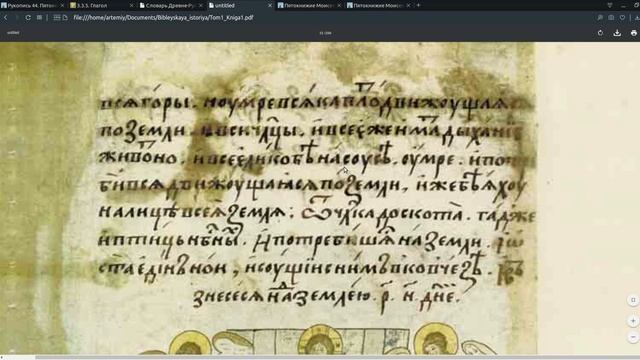 Рукопись 44. Пятокн
3.3.3. Глагол
Словарь Древне-Ру
untitled
Пятокнижие Моисе
Пятокнижие Моисе
file:///home/artemiy/Documents/Bibleyskaya_istoriya/Tom1_Kniga1.pdf
untitled
всѧ горы. и оумре всѧка плⷮо движоущаѧ
по земли. и вси члцы. и всеѥже имⷶа дыханїе
живоⷮно. и все елико бѣ на соусѣ, оумре. и по
би всѧ движоущаѧсѧ по земли, иже бѣѧхоу
на лицѣ всеѧ землѧ: ѿ члка до скота. гад же
и птиць нбⷭны. И потребишѧ на земли.
ста единъ нои, и соущїи с ним в ковчезѣ.
знесесѧ наⷣ землею. р҃. н҃. дн҃е.